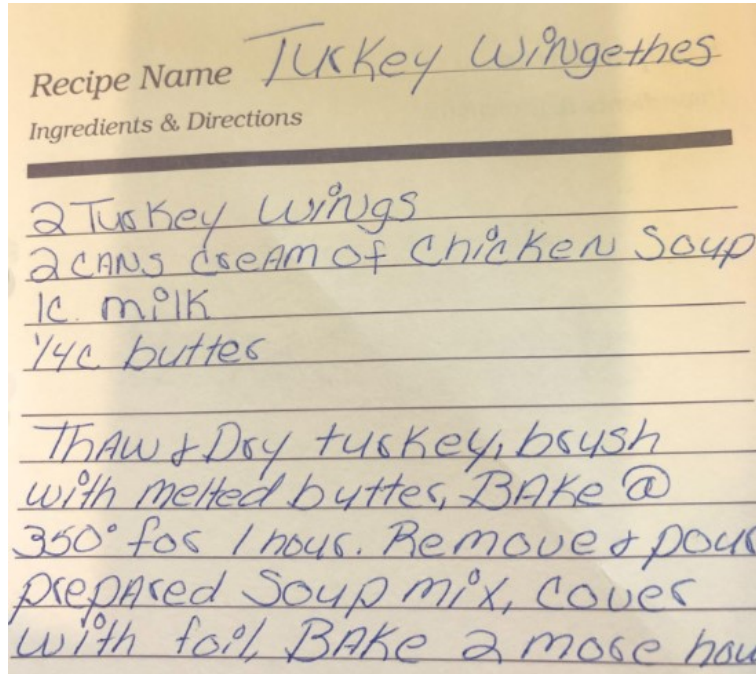 Recipe Name Turkey Wingethes
Ingredients & Directions
2 Turkey Wings
2 CANS CreAM of Chicken Soup
1c. milk
1/4c butter
ThAW & Dry turkey, brush
with melted butter, BAKe @
350° for 1 hour. Remove & pour
prepAred Soup mix, cover
with foil, BAKe 2 more hou